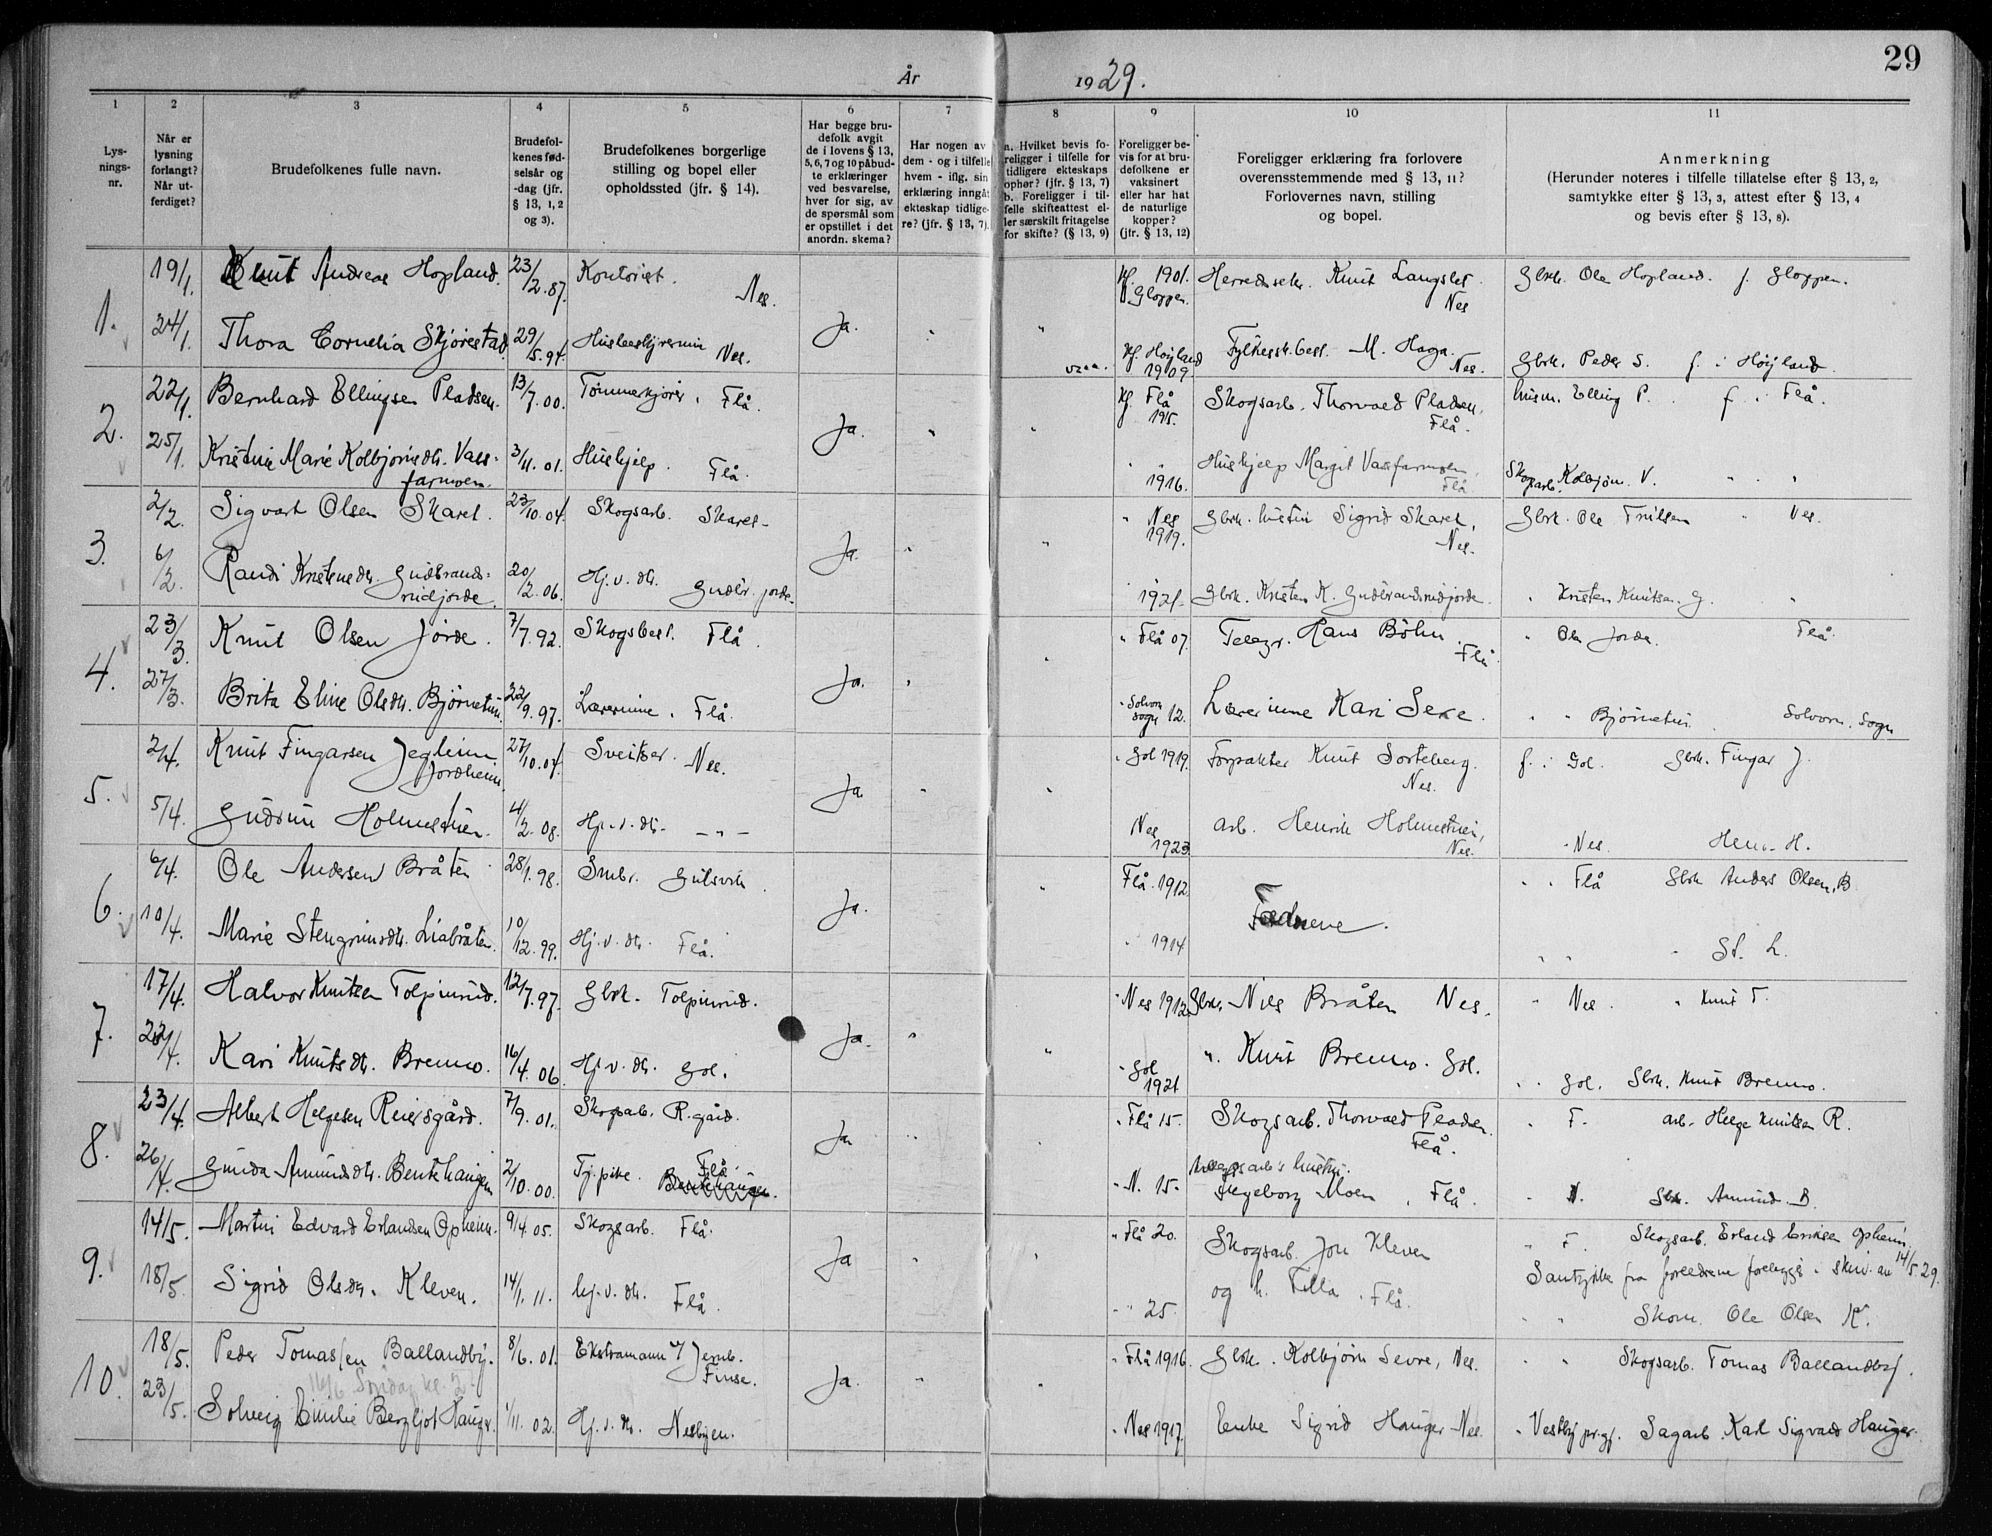 29
År 1929.
1 2 3 4 5 6 7 8 9 10 11
Lys-
nings-
nr.
Når er
lysning
forlangt?
Når ut-
ferdiget?
Brudefolkenes fulle navn.
Brudefol-
kenes fød-
selsår og
-dag (jfr.
§ 13, 1, 2
og 3).
Brudefolkenes borgerlige
stilling og bopel eller
opholdssted (jfr. § 14).
Har begge bru-
defolk avgit
de i lovens § 13,
5, 6, 7 og 10 påbud-
te erklæringer
ved besvarelse,
hver for sig, av
de spørsmål som
er opstillet i det
anordn. skema?
Har nogen av
dem - og i tilfelle
hvem - iflg. sin
erklæring inngåt
ekteskap tidlige-
re? (jfr. § 13, 7).
a. Hvilket bevis fo-
religger i tilfelle for
tidligere ekteskaps
ophør? (jfr. § 13, 7)
b. Foreligger i til-
felle skifteattest el-
ler særskilt fritagelse
for skifte? (§ 13, 9)
Foreligger be-
vis for at bru-
defolkene er
vaksinert
eller har hat
de naturlige
kopper?
(jfr. § 13, 12)
Foreligger erklæring fra forlovere
overensstemmende med § 13, 11?
Forlovernes navn, stilling
og bopel.
Anmerkning
(Herunder noteres i tilfelle tillatelse efter § 13, 2,
samtykke efter § 13, 3, attest efter § 13, 4
og bevis efter § 13, 8).
1. 19/1. Knut Andreas Hopland. 23/2.87. Kontorist. Nes. Ja. Kf. 1901. Gloppen. Herredssekr. Knut Langslet Nes Gbrk. Ole Hopland. f. Gloppen.
24/1. Thora Cornelia Skjørestad 29/5.94. Husbestyrerinne Nes. Kf. Høyland 1909. Fylkesskbest. M. Haga. Nes. Gbrk. Peder S. f. i Høyland.
2. 22/1. Bernhard Ellingsen Pladsen. 13/7.00. Tømmerkjører, Flå. Ja. Kf. Flå 1915. Skogsarb. Thorvald Pladsen, Flå. husm. Elling P. f. i Flå.
25/1. Kristine Marie Kolbjørnsdtr. Vass-
farmoen. 3/11.01. Hushjelp. Flå. " " 1916. Hushjelp Margit Vassfarmoen, Flå Skogsarb. Kolbjørn V. " " "
3. 2/2. Sigvart Olsen Skaret. 23/10.04. Skogsarb. Skaret- Ja. " Nes 1919. Gbrk. hustru Sigrid Skaret, Nes. Gbrk. Ole Trulsen " Nes.
6/2. Randi Kristensdtr. Gudbrands-
rudjorde. 20/2.06. Hj.v. dtr. Gudbr. jorde. " 1921- Gbrk. Kristen K. Gudbrandsrudjorde. " Kristen Knutsen G. "
4. 23/3. Knut Olsen Jorde. 7/7.92. Skogsbest. Flå. Ja. " Flå 07. Telegr. Hans Böhn. Flå " Ole Jorde. Flå.
27/3. Brita Eline Olsdtr. Bjørnetun. 22/9.97. Lærerinne. Flå. " Solvorn sogn 12. Lærerinne Kari Sexe. " " Bjørnetun Solvorn. Sogn
5. 2/4. Knut Fingarsen Jeglum
Jordheim 27/10.04. Sveitser. Nes. Ja. " Gol 1919. Forpakter Knut Sorteberg. Nes. f. i Gol. Gbrk. Fingar J.
5/4. Gudrun Holmestuen. 4/2.08. Hj.v.dtr. - " - Nes 1923. arb. Henrik Holmestuen, Nes. " Nes. Henr. H.
6. 6/4. Ole Andersen Bråten 28/1.98. Smbr. Gulsvik. Ja. Flå. 1912. Fædrene. " " Flå Gbrk Anders Olsen, B.
10/4. Marie Stengrimsdtr. Liabråten. 10/12.99. Hj.v.dtr. Flå. " 1914 " " " St. L.
7. 17/4. Halvor Knutsen Tolpinrud. 12/7.97. Gbrk. Tolpinrud. Ja. " Nes 1912. Gbrk. Nils Bråten Nes. " Nes. " Knut T.
22/4. Kari Knutsdtr. Bremo. 16/4.06. Hj.v.dtr. Gol. " Gol 1921 " Knut Bremo. Gol. " " Gol. Gbrk. Knut Bremo.
8. 23/4. Albert Helgesen Reiersgård. 7/9.01. Skogsarb. R.gård. Ja " Flå 15. Skogsarb. Thorvald Pladsen. Flå. " F. arb. Helge Knutsen R.
26/4. Gunda Amundsdtr. Bentehaugen 2/10.00. Tj.pike. Flå Bentehaugen. " N. 15- skogsarb's hustru. Ingeborg Moen, Flå. " N. Gbrk. Amund B.
9. 14/5. Martin Edvard Erlandsen Opheim. 9/4.05. Skogsarb. Flå. Ja " Flå 20. Skogsarb. Jon Kleven " F. Skogsarb. Erland Eriksen Opheim,
Samtykke fra foreldrene foreligger i skriv. av 14/5.29.
18/5. Sigrid Olsdtr. Kleven. 14/1.11. hj.v.dtr. Flå. " " 25 og h. Tilla. Flå. " " Skom. Ole Olsen K.
10. 18/5. Peder Tomassen Ballandby. 8/6.01. Ekstramann v/ Jernb. Finse. Ja. " Flå 1916. Gbrk. Kolbjørn Sevre, Nes. " " Skogsarb. Tomas Ballandby.
16/6 Søndag kl. 2
23/5. Solveig Emilie Bergljot Hauger. 1/11.02. Hj.v.dtr. Nesbyen. " Nes 1917. Enke Sigrid Hauger Nes. " Vestby pr.gj. Sagarb. Karl Sigvald Hauger.